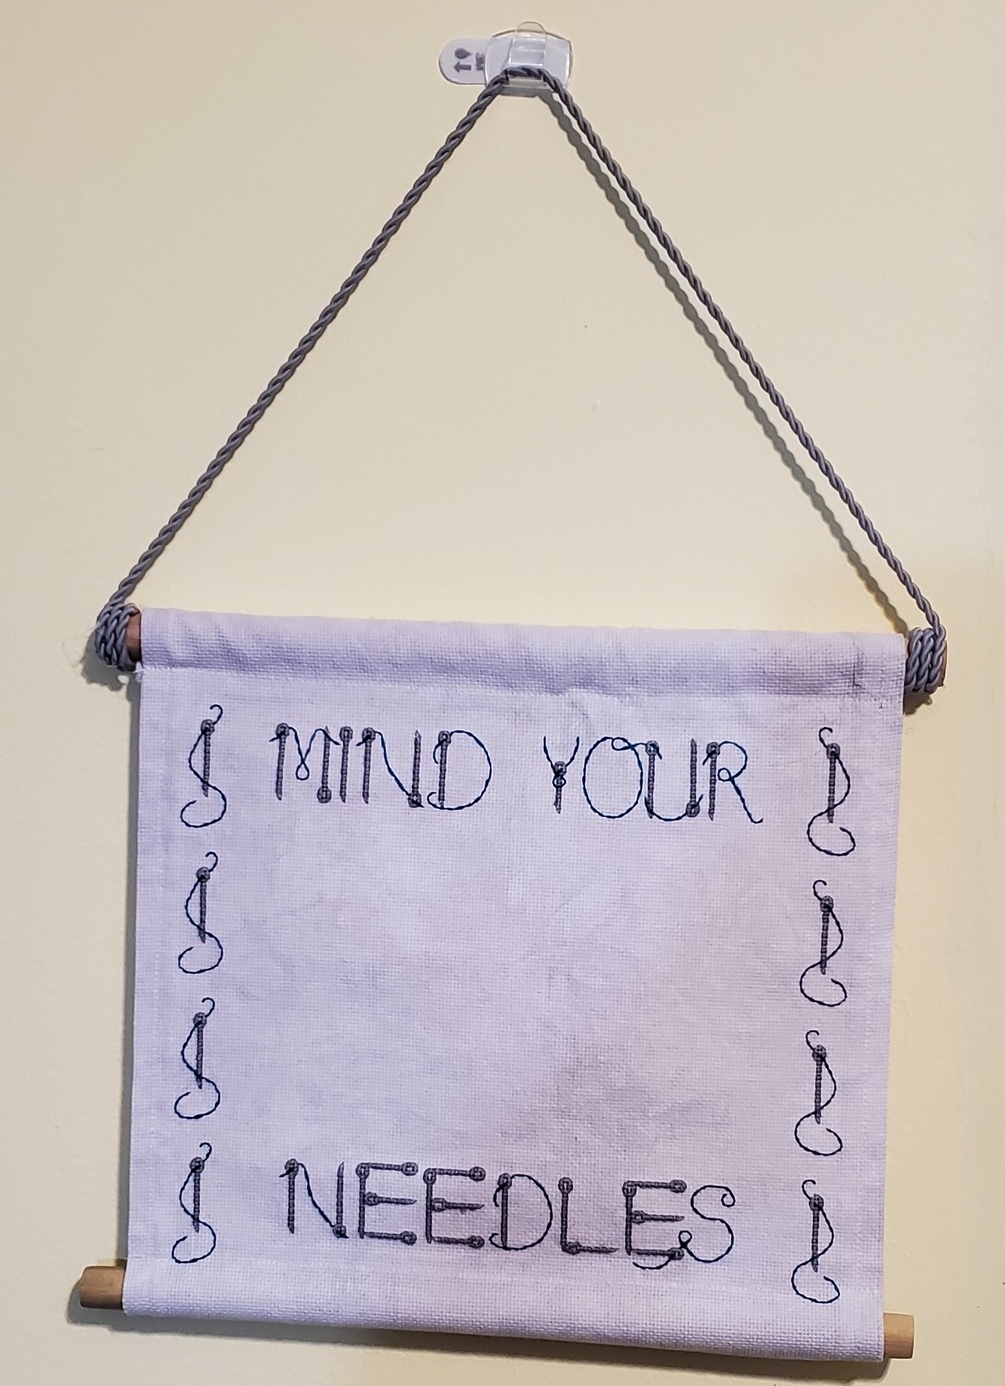 MIND YOUR
NEEDLES